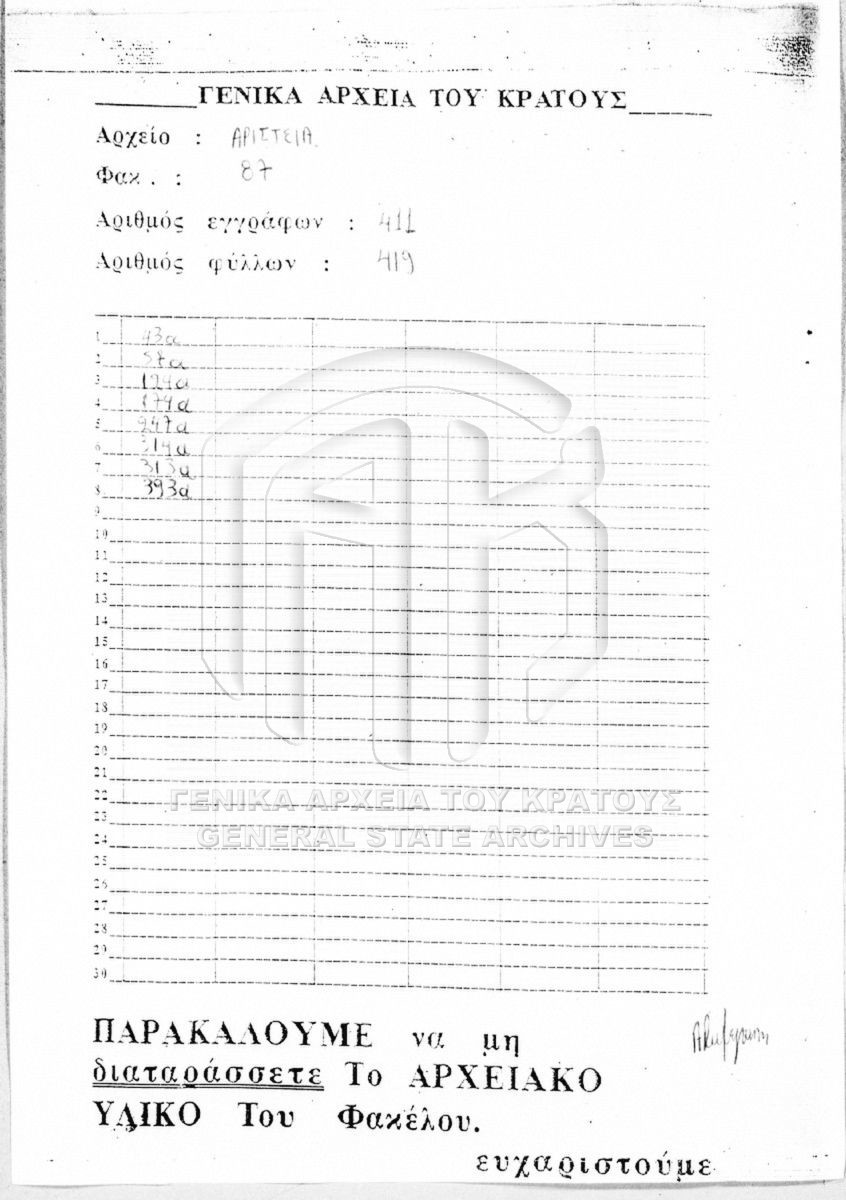 ΓΕΝΙΚΑ ΑΡΧΕΙΑ ΤΟΥ ΚΡΑΤΟΥΣ
Αρχείο : ΑΡΙΣΤΕΙΑ
Φακ. : 87
Αριθμός εγγράφων : 411
Αριθμός φύλλων : 419
1 43α
2 57α
3 124α
4 174α
5 247α
6 314α
7 313α
8 393α
9
10
11
12
13
14
15
16
17
18
19
20
21
22
23
24
25
26
27
28
29
30
ΓΕΝΙΚΑ ΑΡΧΕΙΑ ΤΟΥ ΚΡΑΤΟΥΣ
GENERAL STATE ARCHIVES
ΠΑΡΑΚΑΛΟΥΜΕ να μη
διαταράσσετε Το ΑΡΧΕΙΑΚΟ
ΥΛΙΚΟ Του Φακέλου.
ευχαριστούμε